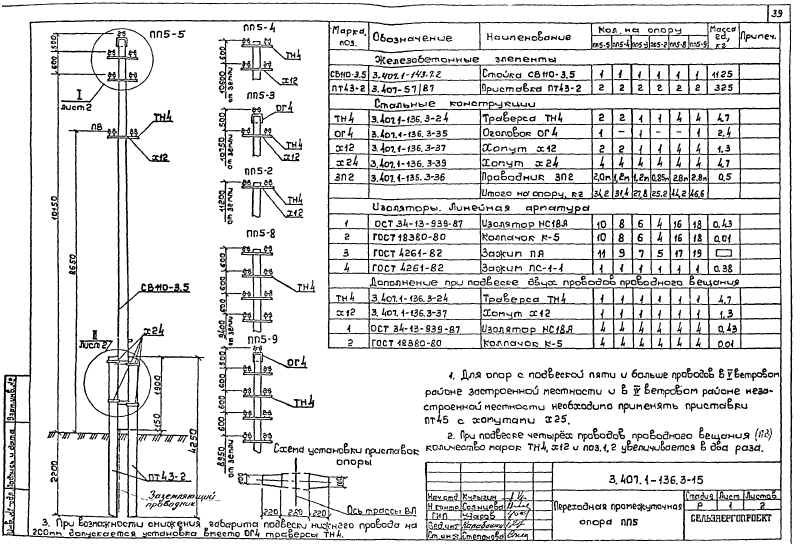 39
ПП5-5
ПП5-4
ТН4
Х12
ПП5-3
ОГ4
ТН4
Х12
ПП5-2
ТН4
Х12
ПП5-8
ТН4
ПП5-9
ОГ4
ТН4
I
лист 2
ПВ
ТН4
Х12
СВ110-3,5
II
лист 2
Х24
ПТ43-2
Заземляющий
проводник
10150
8650
2200
4250
1900
150
от земли
10750
11200
9400
8950
Схема установки приставок
опоры
Ось трассы ВЛ
220 250 220
Марка, поз. Обозначение Наименование Кол. на опору Масса ед., кг Примеч.
ПП5-5 ПП5-4 ПП5-3 ПП5-2 ПП5-8 ПП5-9
Железобетонные элементы
СВ110-3,5 3.407.1-143.7.2 Стойка СВ110-3,5 1 1 1 1 1 1 1125
ПТ43-2 3.407-57/87 Приставка ПТ43-2 2 2 2 2 2 2 325
Стальные конструкции
ТН4 3.407.1-136.3-24 Траверса ТН4 2 2 1 1 4 4 4,7
ОГ4 3.407.1-136.3-35 Оголовок ОГ4 1 – 1 – – 1 2,4
Х12 3.407.1-136.3-37 Хомут Х12 2 2 1 1 4 4 1,3
Х24 3.407.1-136.3-39 Хомут Х24 4 4 4 4 4 4 4,7
ЗП2 3.407.1-136.3-36 Проводник ЗП2 2,0м 1,2м 1,2м 0,85м 2,8м 2,8м 0,5
Итого на опору, кг 34,2 31,4 27,8 25,2 44,2 46,6
Изоляторы. Линейная арматура
1 ОСТ 34-13-939-87 Изолятор НС18А 10 8 6 4 16 18 0,43
2 ГОСТ 18380-80 Колпачок К-5 10 8 6 4 16 18 0,01
3 ГОСТ 4261-82 Зажим ПА 11 9 7 5 17 19
4 ГОСТ 4261-82 Зажим ПС-1-1 1 1 1 1 1 1 0,38
Дополнение при подвеске двух проводов проводного вещания
ТН4 3.407.1-136.3-24 Траверса ТН4 1 1 1 1 1 1 4,7
Х12 3.407.1-136.3-37 Хомут Х12 1 1 1 1 1 1 1,3
1 ОСТ 34-13-939-87 Изолятор НС18А 4 4 4 4 4 4 0,43
2 ГОСТ 18380-80 Колпачок К-5 4 4 4 4 4 4 0,01
1. Для опор с подвеской пяти и больше проводов в V ветровом
районе застроенной местности и в IV ветровом районе неза-
строенной местности необходимо применять приставки
ПТ45 с хомутами Х25.
2. При подвеске четырёх проводов проводного вещания (П2)
количество марок ТН4, Х12 и поз. 1, 2 увеличивается в два раза.
3. При возможности снижения габарита подвески нижнего провода на
200мм допускается установка вместо ОГ4 траверсы ТН4.
3.407.1-136.3-15
Нач.отд. Кулыгин
Н.контр. Солнцева
ГИП Ударов
Ст.инж. Степанова
Переходная промежуточная
опора ПП5
Стадия Лист Листов
Р 1 2
СЕЛЬЭНЕРГОПРОЕКТ